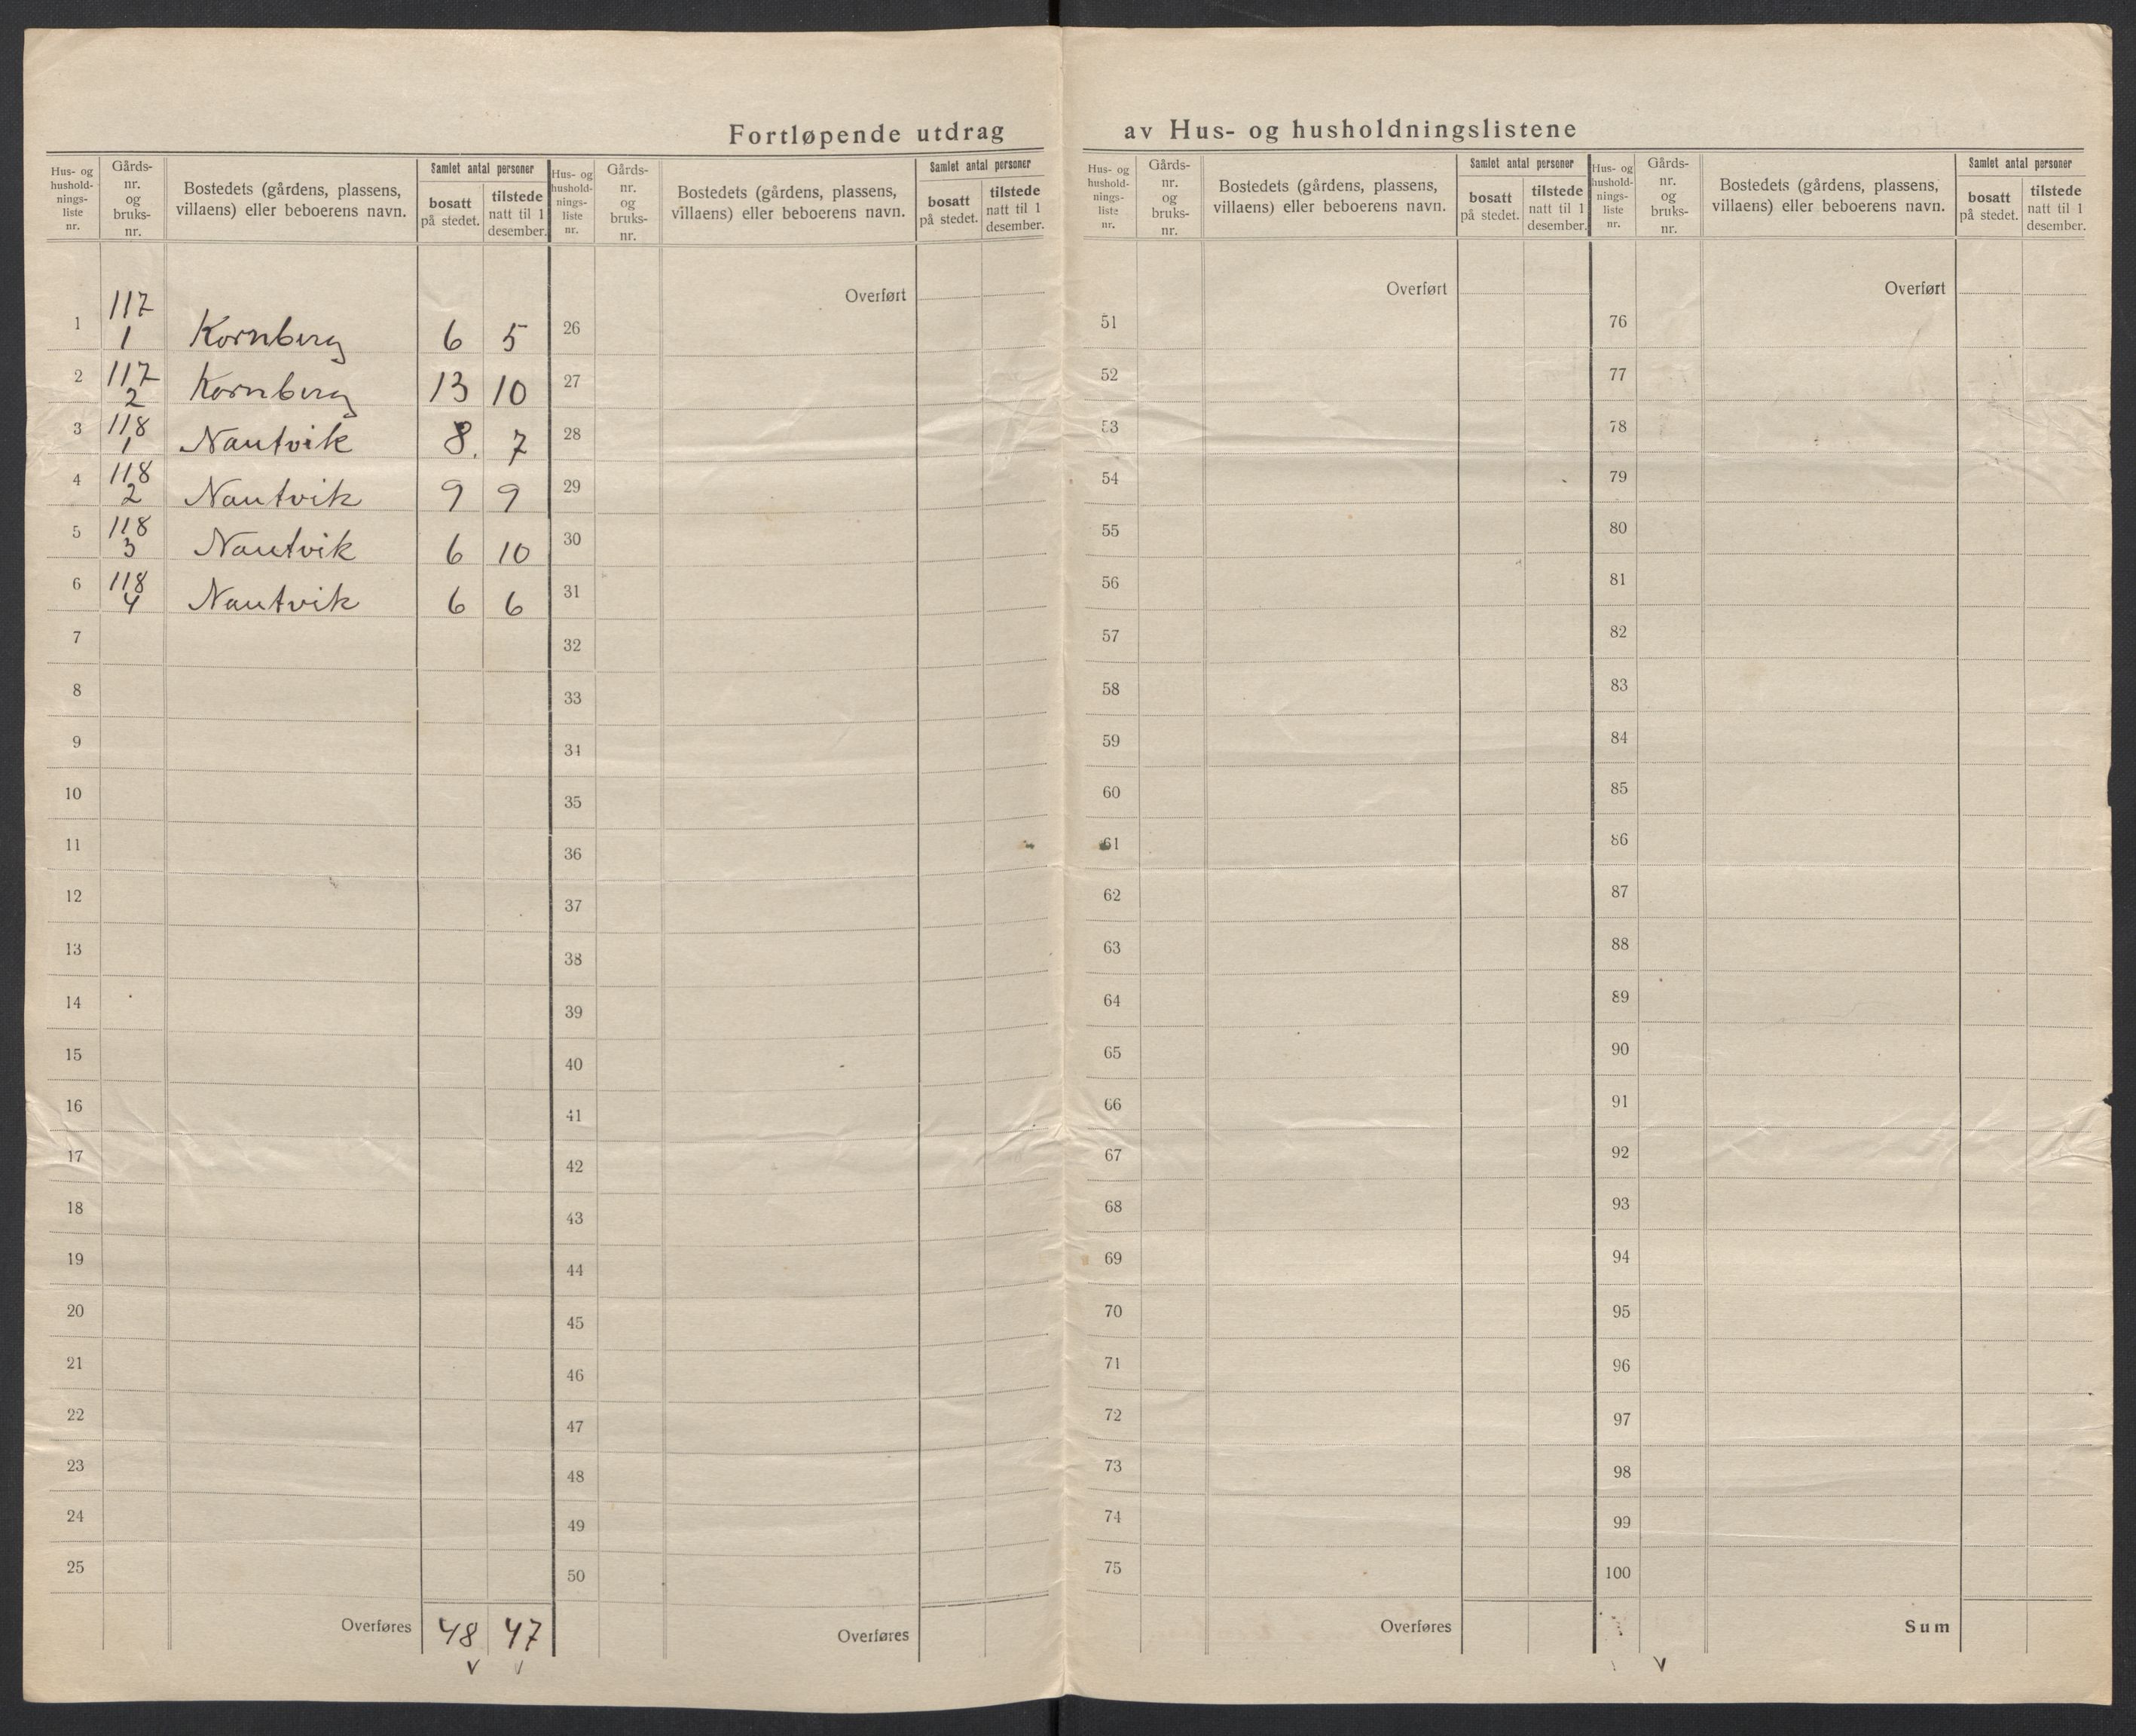 Fortløpende utdrag av Hus- og husholdningslistene
Hus- og hushold-nings-liste nr. Gårds-nr. og bruks-nr. Bostedets (gårdens, plassens, villaens) eller beboerens navn. Samlet antal personer bosatt på stedet. tilstede natt til 1 desember.
1 117 1 Kornberg 6 5
2 117 2 Kornberg 13 10
3 118 1 Nautvik 8. 7
4 118 2 Nautvik 9 9
5 118 3 Nautvik 6 10
6 118 4 Nautvik 6 6
7
8
9
10
11
12
13
14
15
16
17
18
19
20
21
22
23
24
25
Overføres 48 47
Hus- og hushold-nings-liste nr. Gårds-nr. og bruks-nr. Bostedets (gårdens, plassens, villaens) eller beboerens navn. Samlet antal personer bosatt på stedet. tilstede natt til 1 desember.
Overført
26
27
28
29
30
31
32
33
34
35
36
37
38
39
40
41
42
43
44
45
46
47
48
49
50
Overføres
Hus- og hushold-nings-liste nr. Gårds-nr. og bruks-nr. Bostedets (gårdens, plassens, villaens) eller beboerens navn. Samlet antal personer bosatt på stedet. tilstede natt til 1 desember.
Overført
51
52
53
54
55
56
57
58
59
60
61
62
63
64
65
66
67
68
69
70
71
72
73
74
75
Overføres
Hus- og hushold-nings-liste nr. Gårds-nr. og bruks-nr. Bostedets (gårdens, plassens, villaens) eller beboerens navn. Samlet antal personer bosatt på stedet. tilstede natt til 1 desember.
Overført
76
77
78
79
80
81
82
83
84
85
86
87
88
89
90
91
92
93
94
95
96
97
98
99
100
Sum